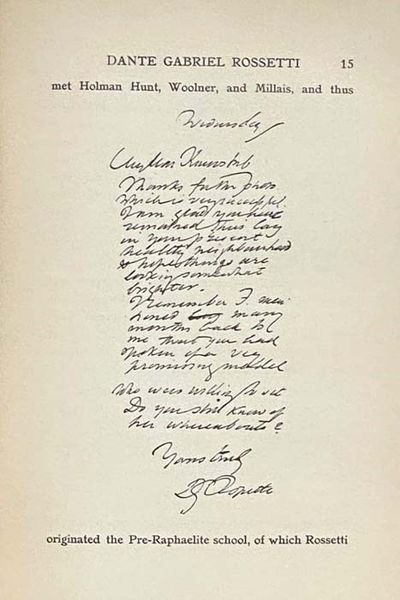 DANTE GABRIEL ROSSETTI 15
met Holman Hunt, Woolner, and Millais, and thus
Wednesday
My dear
Thanks for the
which is very successful.
I am glad you have
remained thus long
in your present
healthy neighbourhood
& hope things are
looking somewhat
brighter.
I remember F. men
tioned long many
months back to
me that you had
spoken of a very
promising model
who was willing to sit
Do you still know of
her whereabouts?
Yours truly
DG Rossetti
originated the Pre-Raphaelite school, of which Rossetti